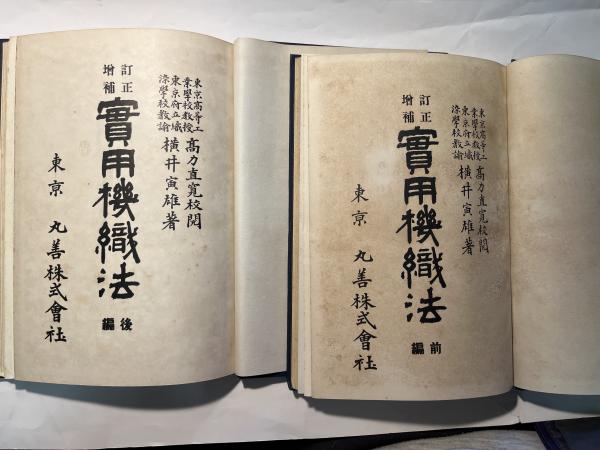 東京高等工
業學校教授
高力直寬校閱
東京府立織
染學校教諭
橫井寅雄著
訂正
增補
實用機織法
前編
東京 丸善株式會社
東京高等工
業學校教授
高力直寬校閱
東京府立織
染學校教諭
橫井寅雄著
訂正
增補
實用機織法
後編
東京 丸善株式會社